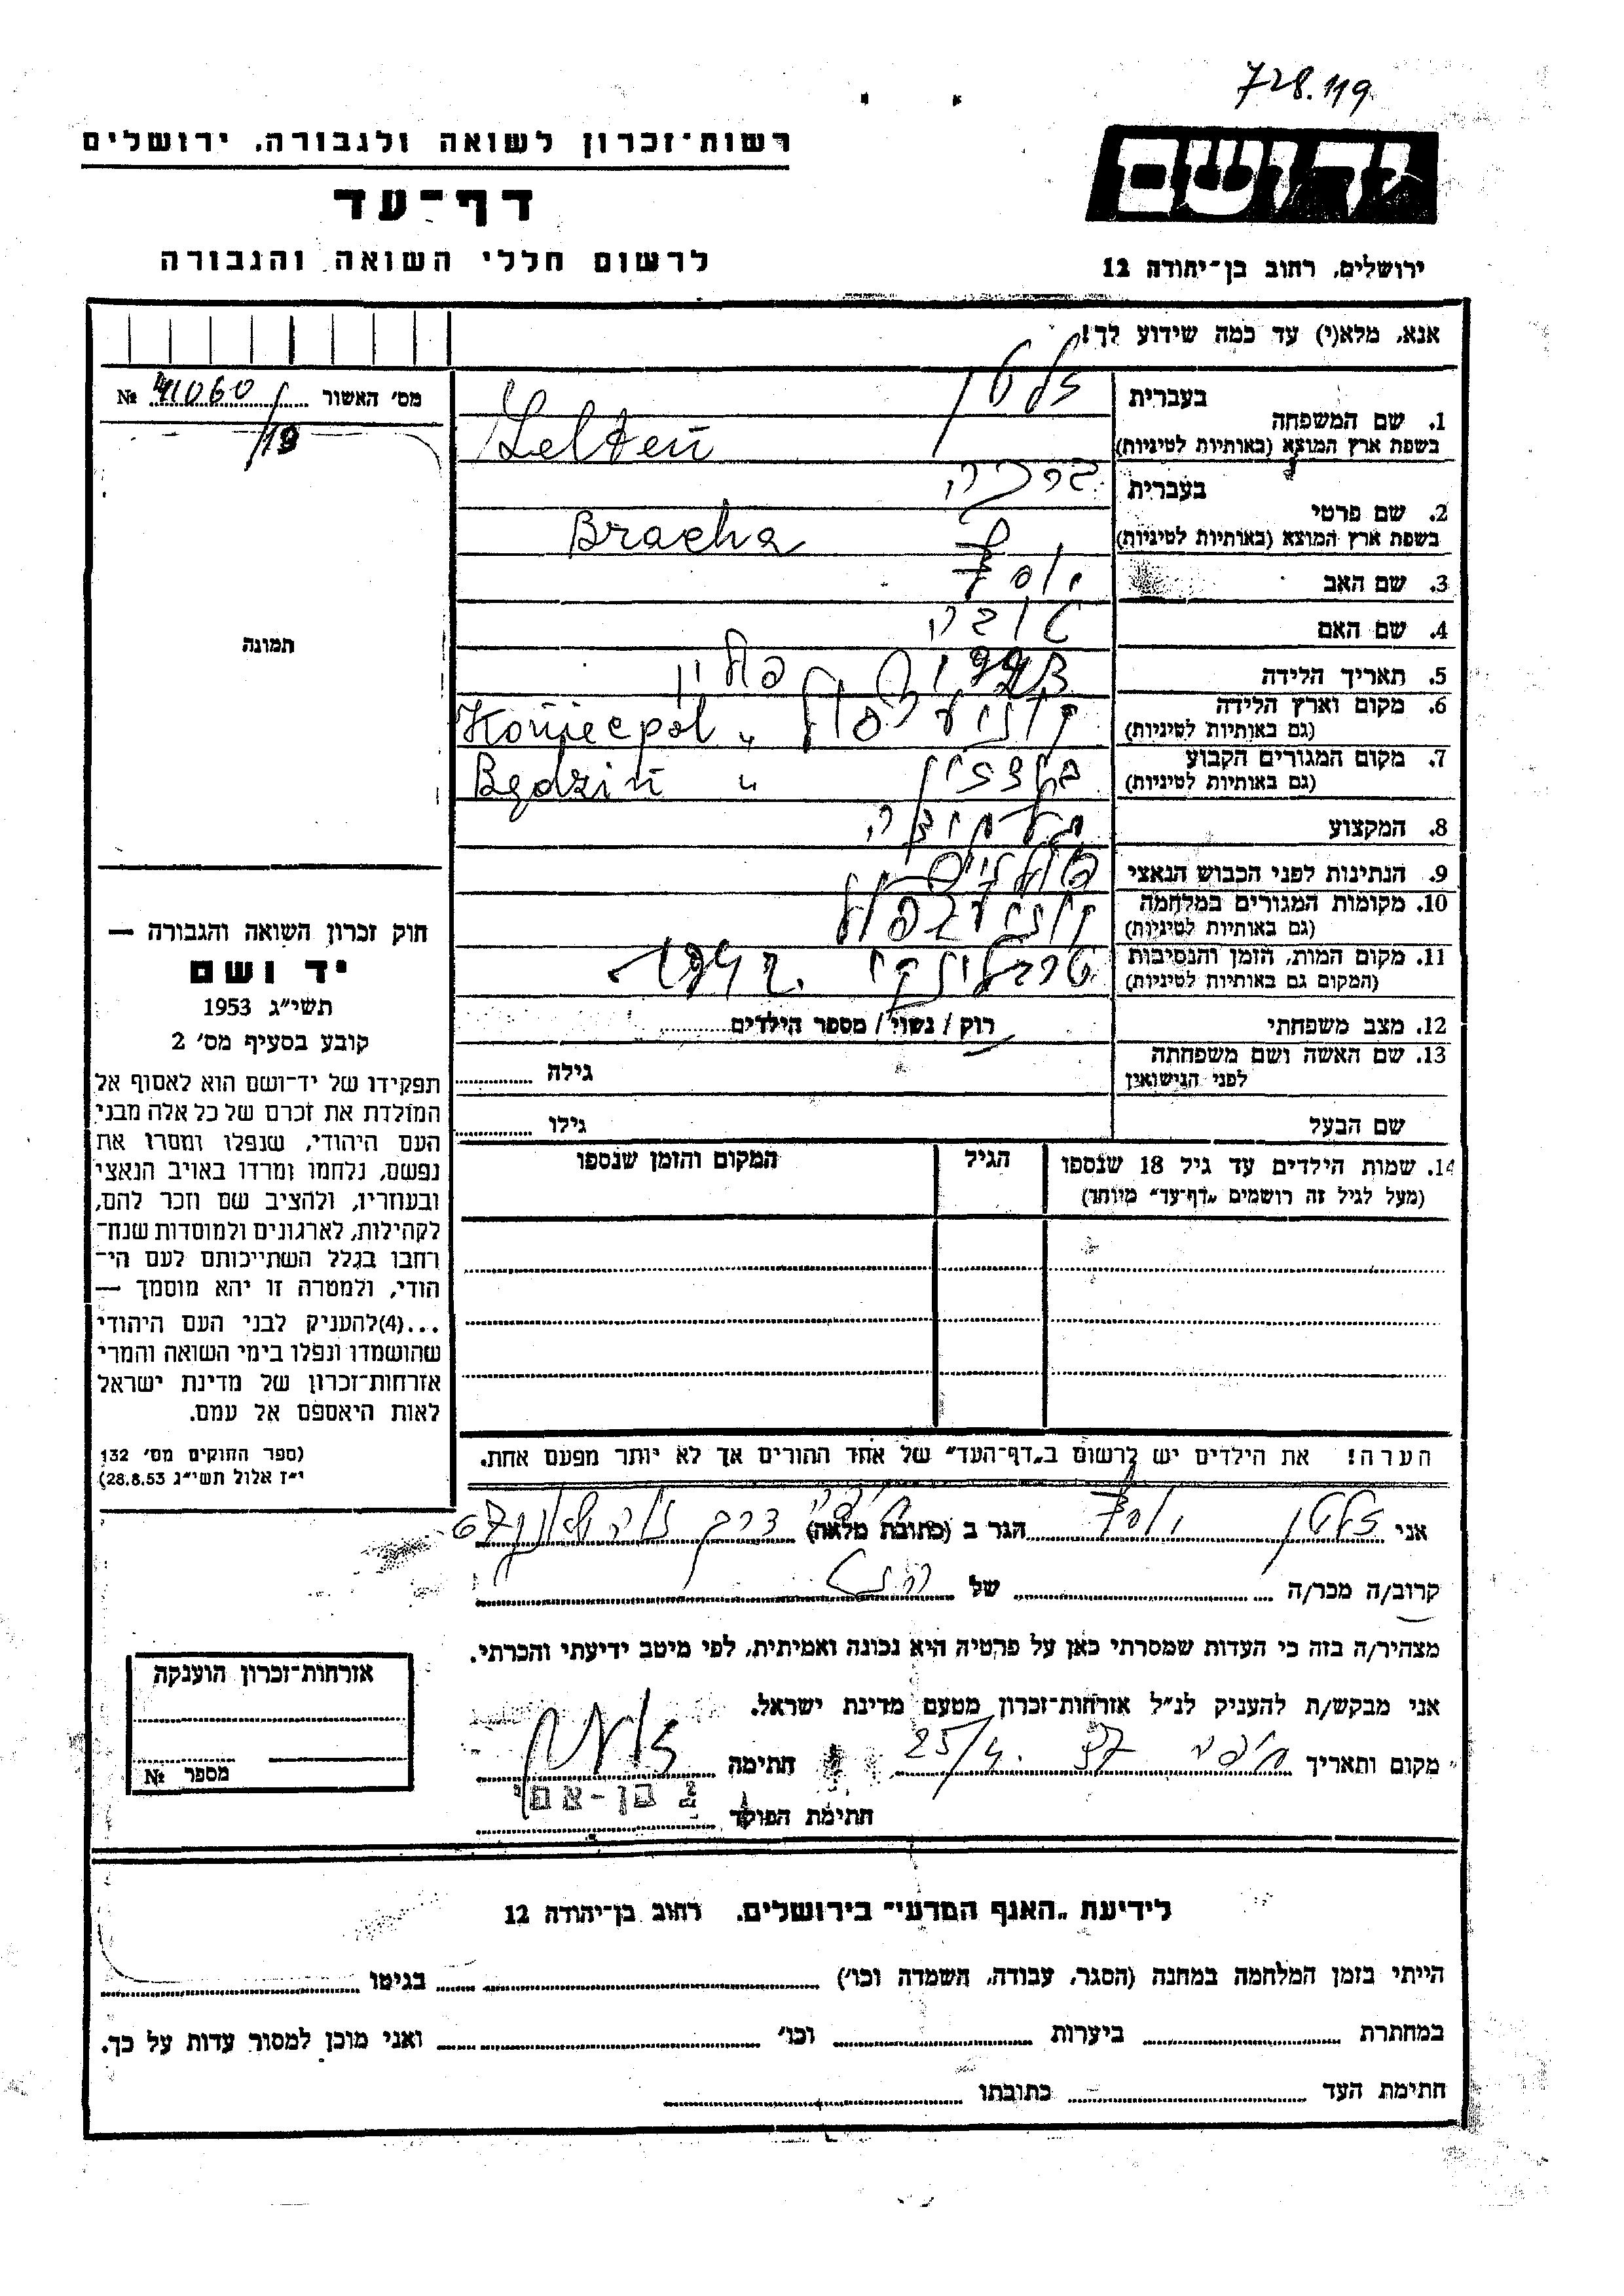 728.119
רשות־זכרון לשואה ולגבורה, ירושלים
דף־עד
לרשום חללי השואה והגבורה
יד ושם
ירושלים, רחוב בן־יהודה 12
אנא, מלא(י) עד כמה שידוע לך!
מס׳ האשור 41060 №
/19
תמונה
1. שם המשפחה
בעברית זלטן
בשפת ארץ המוצא (באותיות לטיניות) Zelten
2. שם פרטי
בעברית ברכה
בשפת ארץ המוצא (באותיות לטיניות) Bracha
3. שם האב יוסף
4. שם האם טובה
5. תאריך הלידה
6. מקום וארץ הלידה פולין
(גם באותיות לטיניות) Koniecpol "
7. מקום המגורים הקבוע בנדזין
(גם באותיות לטיניות) Będzin "
8. המקצוע תלמידה
9. הנתינות לפני הכבוש הנאצי פולנית
10. מקומות המגורים במלחמה
(גם באותיות לטיניות)
11. מקום המות, הזמן והנסיבות טרבלינקי 1942.
(המקום גם באותיות לטיניות)
12. מצב משפחתי רוק / נשוי / מספר הילדים
13. שם האשה ושם משפחתה
לפני הנישואין גילה
שם הבעל גילו
14. שמות הילדים עד גיל 18 שנספו הגיל המקום והזמן שנספו
(מעל לגיל זה רושמים „דף־עד״ מיוחד)
חוק זכרון השואה והגבורה —
יד ושם
תשי״ג 1953
קובע בסעיף מס׳ 2
תפקידו של יד־ושם הוא לאסוף אל
המולדת את זכרם של כל אלה מבני
העם היהודי, שנפלו ומסרו את
נפשם, נלחמו ומרדו באויב הנאצי
ובעוזריו, ולהציב שם וזכר להם,
לקהילות, לארגונים ולמוסדות שנח־
רחבו בגלל השתייכותם לעם הי־
הודי, ולמטרה זו יהא מוסמך —
...(4)להעניק לבני העם היהודי
שהושמדו ונפלו בימי השואה והמרי
אזרחות־זכרון של מדינת ישראל
לאות היאספם אל עמם.
(ספר החוקים מס׳ 132
י״ז אלול תשי״ג 28.8.53)
הערה! את הילדים יש לרשום ב„דף־העד״ של אחד ההורים אך לא יותר מפעם אחת.
אני זלטן יוסף הגר ב (כתובת מלאה) חיפה דרך
קרוב/ה מכר/ה של
מצהיר/ה בזה כי העדות שמסרתי כאן על פרטיה היא נכונה ואמיתית, לפי מיטב ידיעתי והכרתי.
אני מבקש/ת להעניק לנ״ל אזרחות־זכרון מטעם מדינת ישראל.
מקום ותאריך חיפה 25/4. 57 חתימה
חתימת הפוקד י בן-אמי
אזרחות־זכרון הוענקה
מספר №
לידיעת „האגף המדעי״ בירושלים, רחוב בן־יהודה 12
הייתי בזמן המלחמה במחנה (הסגר, עבודה, השמדה וכו׳) בגיטו
במחתרת ביערות וכו׳ ואני מוכן למסור עדות על כך.
חתימת העד כתובתו